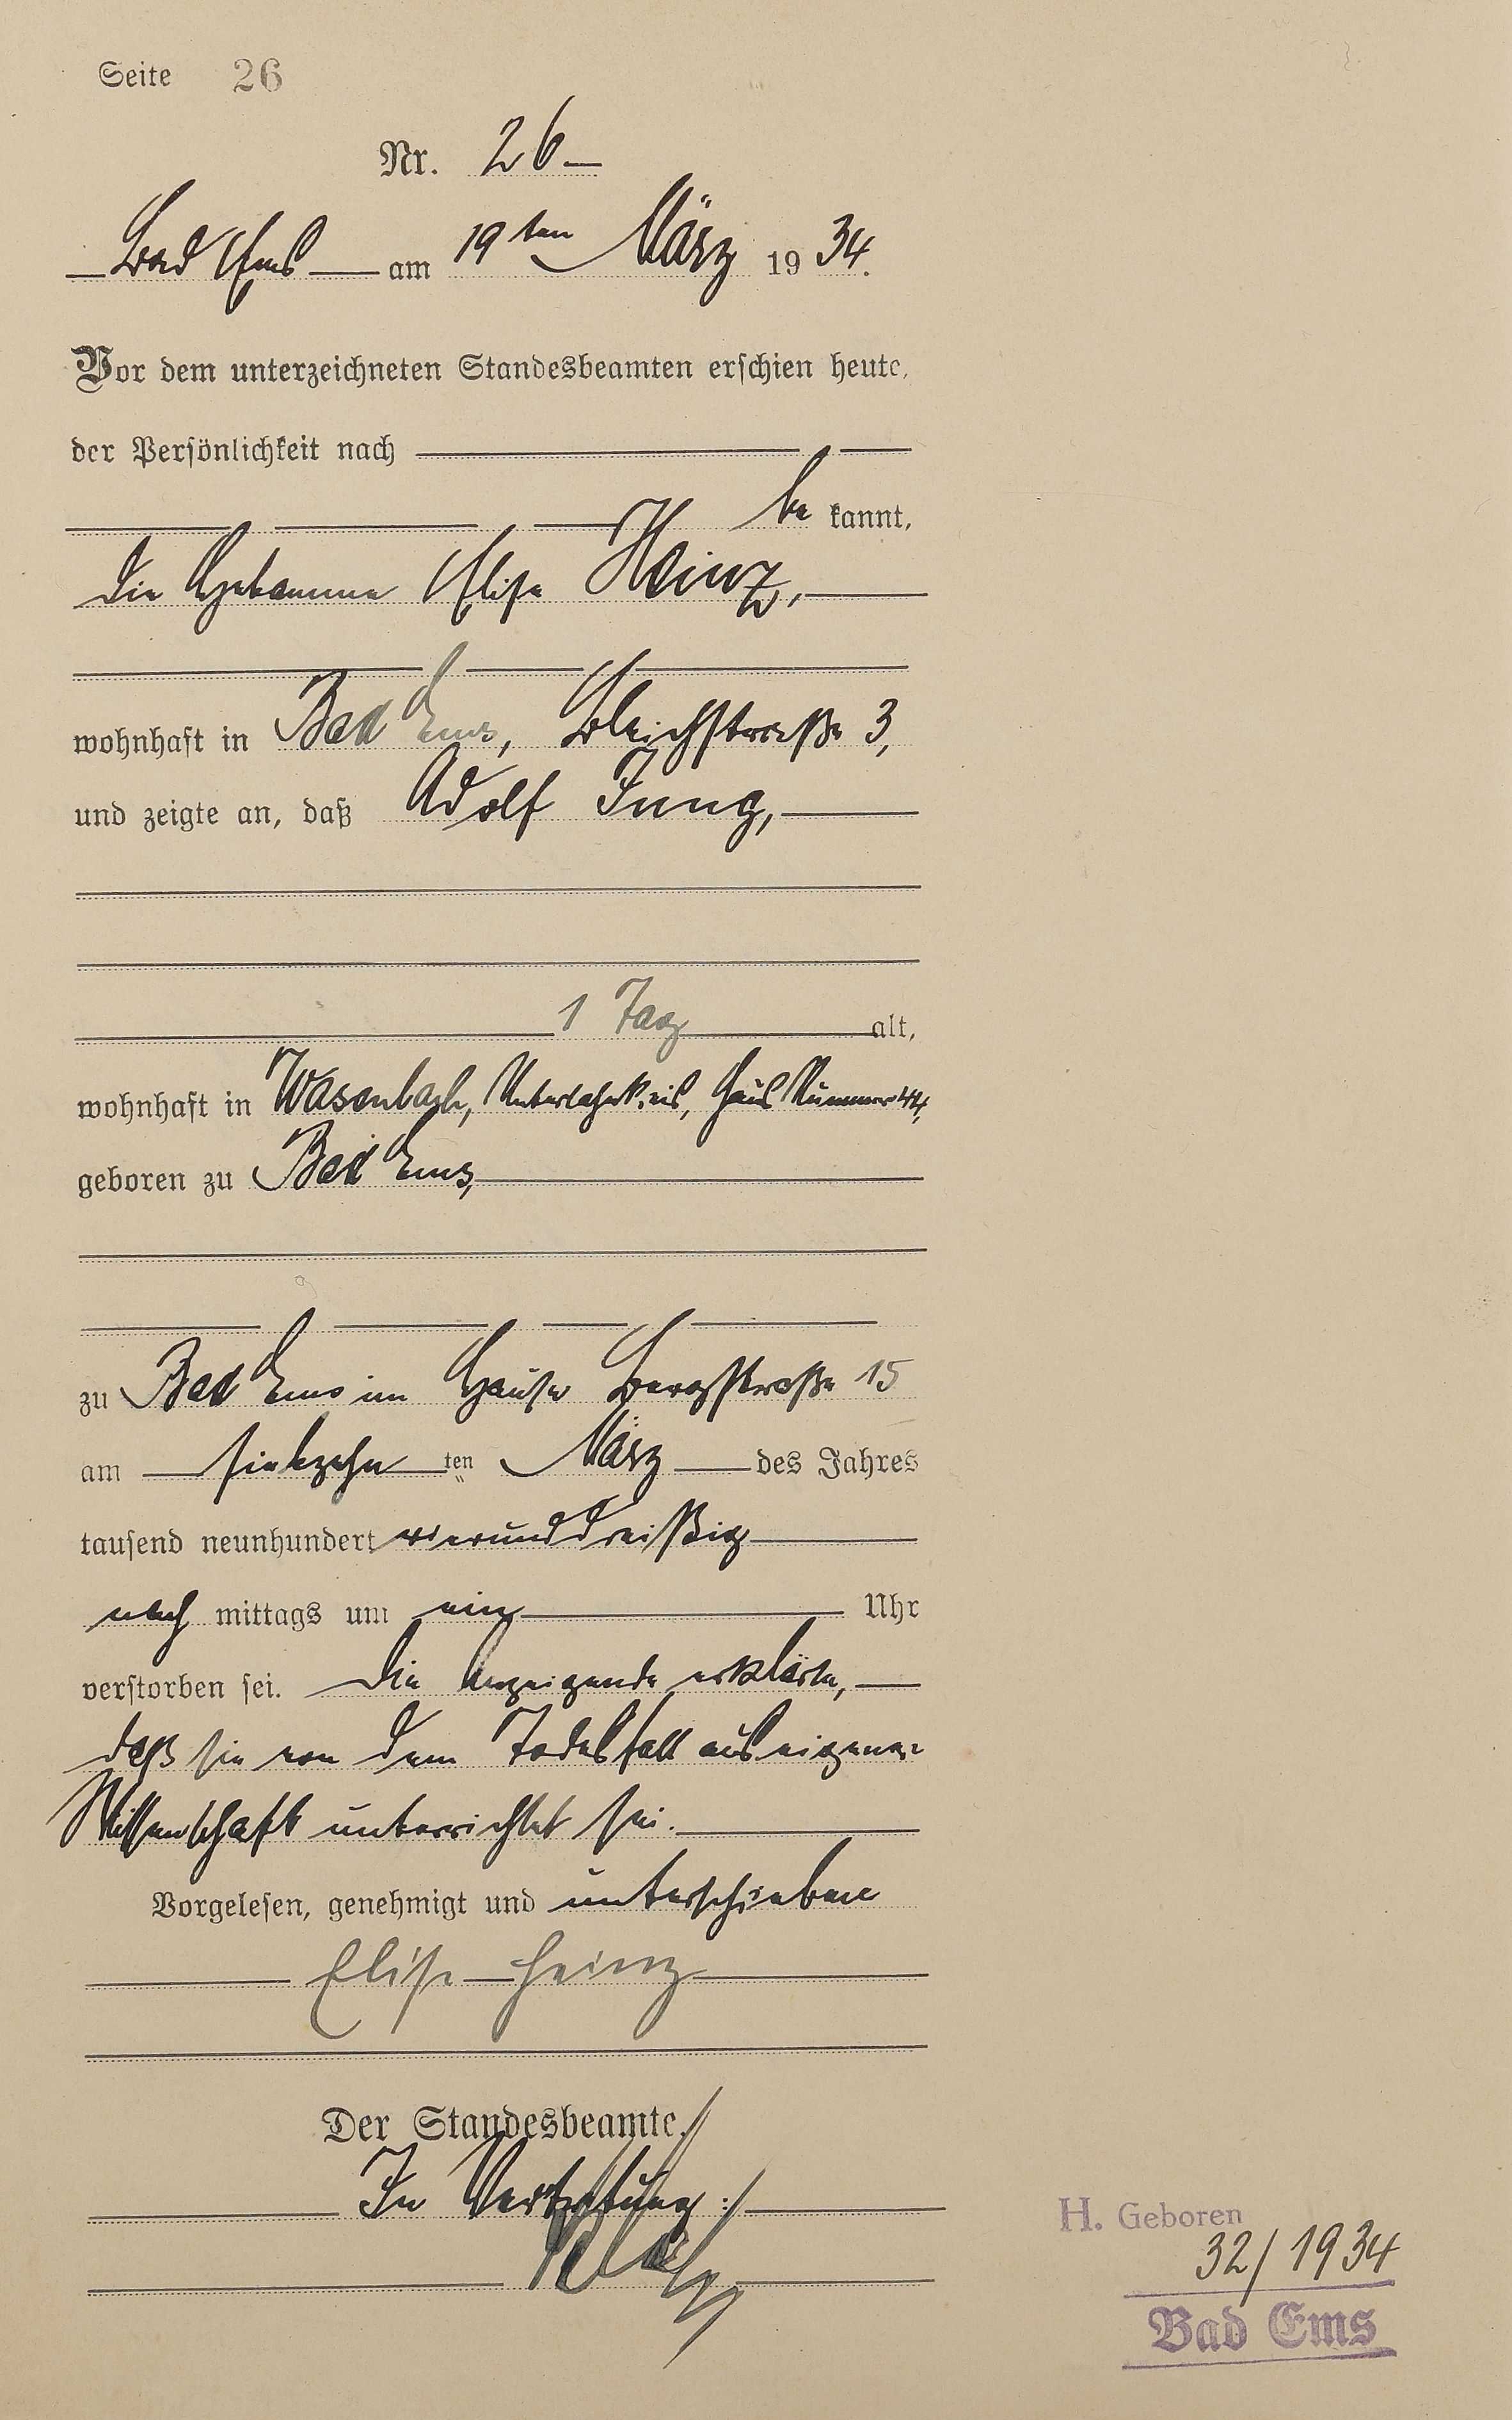 Seite 26
Nr. 26
Bad Ems am 19ten März 1934.
Vor dem unterzeichneten Standesbeamten erschien heute,
der Persönlichkeit nach
be kannt,
die Hebamme Elise Heinz,
wohnhaft in Bad Ems, Bleichstraße 3,
und zeigte an, daß Adolf Jung,
1 Tag alt,
wohnhaft in Wasenbach, Unterlahnkreis, Haus Nummer 44,
geboren zu Bad Ems,
zu Bad Ems im Hause Bergstraße 15
am siebzehn ten März des Jahres
tausend neunhundert vierunddreißig
nach mittags um ein Uhr
verstorben sei. Die Anzeigende erklärte,
daß sie von dem Todesfall aus eigener
Wissenschaft unterrichtet sei.
Vorgelesen, genehmigt und unterschrieben
Elise Heinz
Der Standesbeamte.
In Vertretung:
H. Geboren
32/1934
Bad Ems